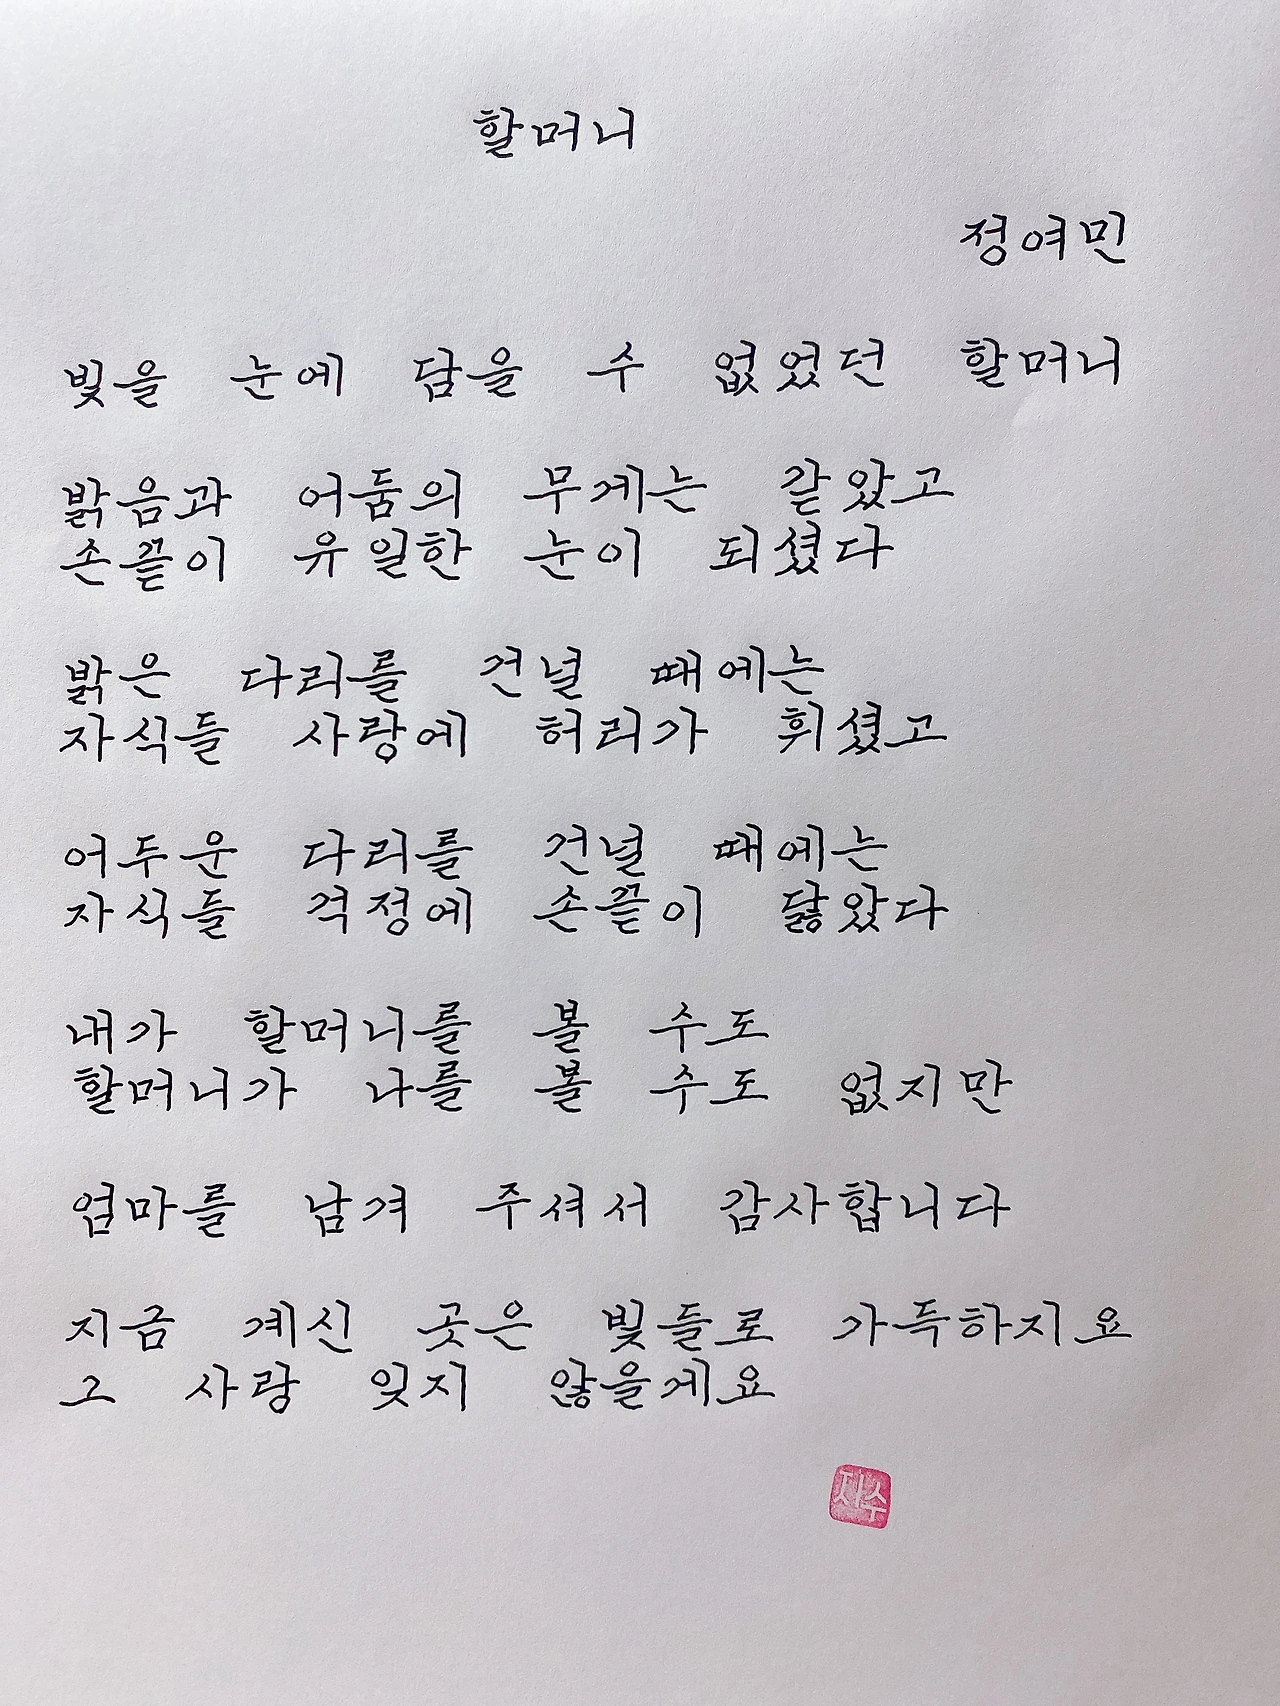 할머니
정여민
빛을 눈에 담을 수 없었던 할머니
밝음과 어둠의 무게는 같았고
손끝이 유일한 눈이 되셨다
밝은 다리를 건널 때에는
자식들 사랑에 허리가 휘셨고
어두운 다리를 건널 때에는
자식들 걱정에 손끝이 닳았다
내가 할머니를 볼 수도
할머니가 나를 볼 수도 없지만
엄마를 남겨 주셔서 감사합니다
지금 계신 곳은 빛들로 가득하지요
그 사랑 잊지 않을게요